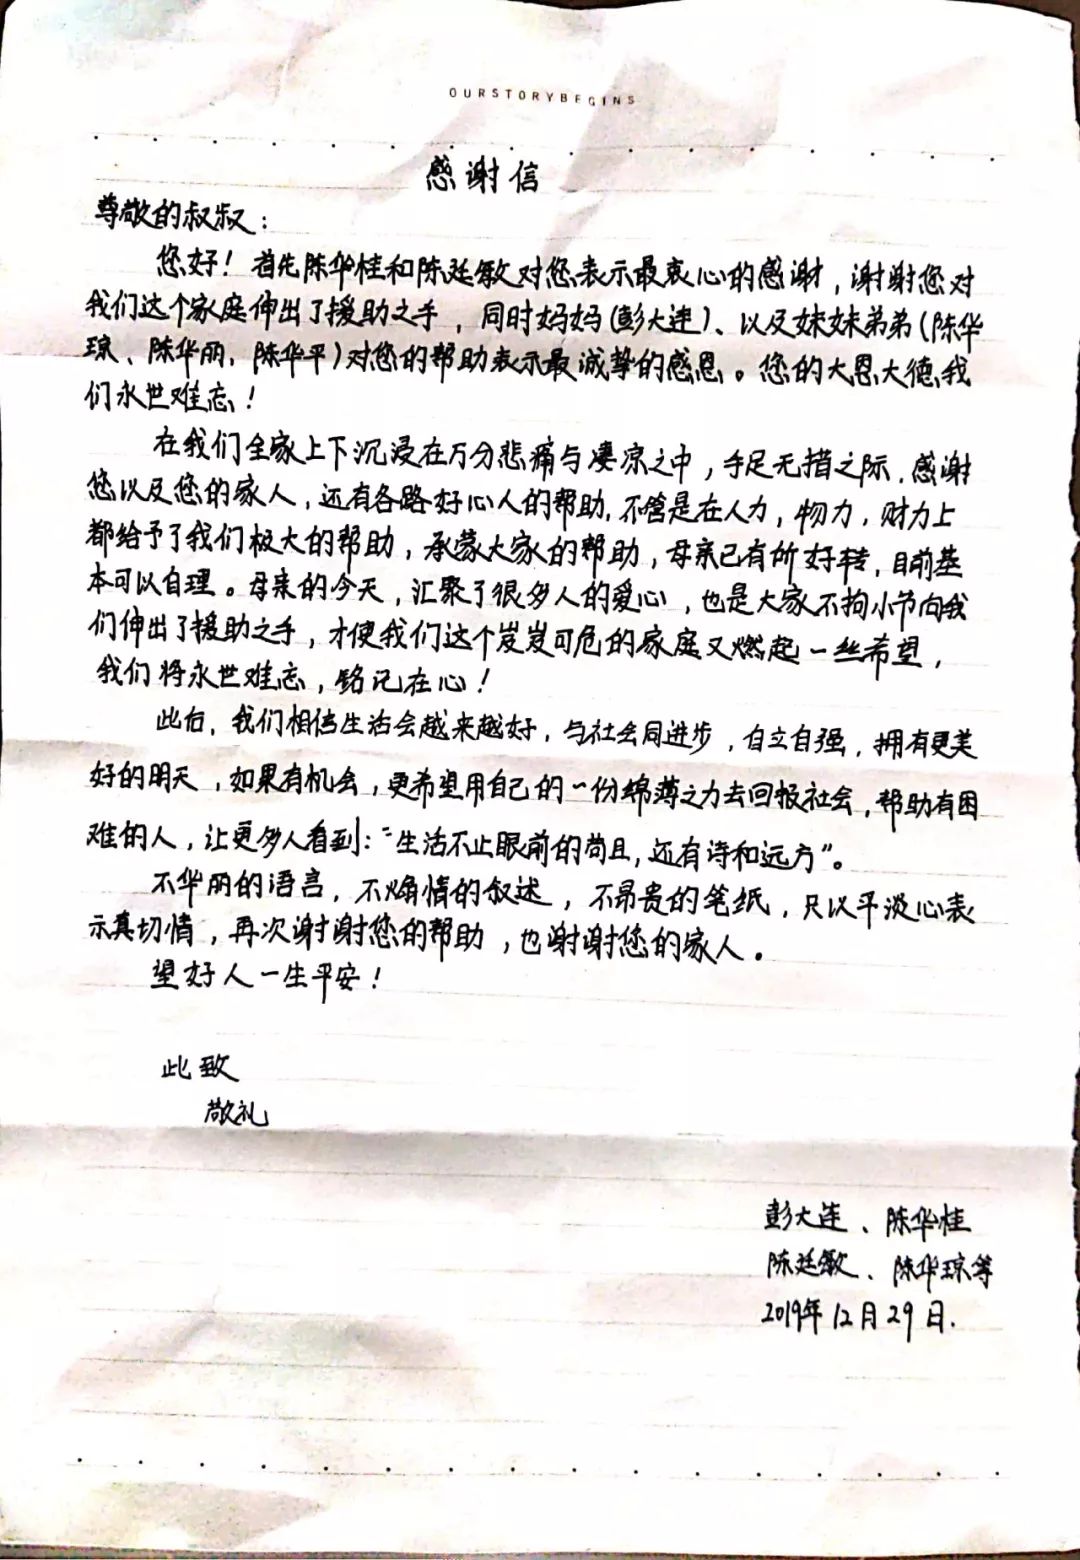 OURSTORYBEGINS
感谢信
尊敬的叔叔：
您好！首先陈华桂和陈廷敏对您表示最衷心的感谢，谢谢您对
我们这个家庭伸出了援助之手，同时妈妈(彭大连)、以及妹妹弟弟(陈华
琼、陈华丽、陈华平)对您的帮助表示最诚挚的感恩。您的大恩大德我
们永世难忘！
在我们全家上下沉浸在万分悲痛与凄凉之中，手足无措之际，感谢
您以及您的家人，还有各路好心人的帮助，不管是在人力，物力，财力上
都给予了我们极大的帮助，承蒙大家的帮助，母亲已有所好转，目前基
本可以自理。母亲的今天，汇聚了很多人的爱心，也是大家不拘小节向我
们伸出了援助之手，才使我们这个岌岌可危的家庭又燃起一丝希望，
我们将永世难忘，铭记在心！
此后，我们相信生活会越来越好，与社会同进步，自立自强，拥有更美
好的明天，如果有机会，更希望用自己的一份绵薄之力去回报社会，帮助有困
难的人，让更多人看到：“生活不止眼前的苟且，还有诗和远方”。
不华丽的语言，不煽情的叙述，不昂贵的笔纸，只以平淡心表
示真切情，再次谢谢您的帮助，也谢谢您的家人。
望好人一生平安！
此致
敬礼
彭大连、陈华桂
陈廷敏、陈华琼等
2019年12月29日.